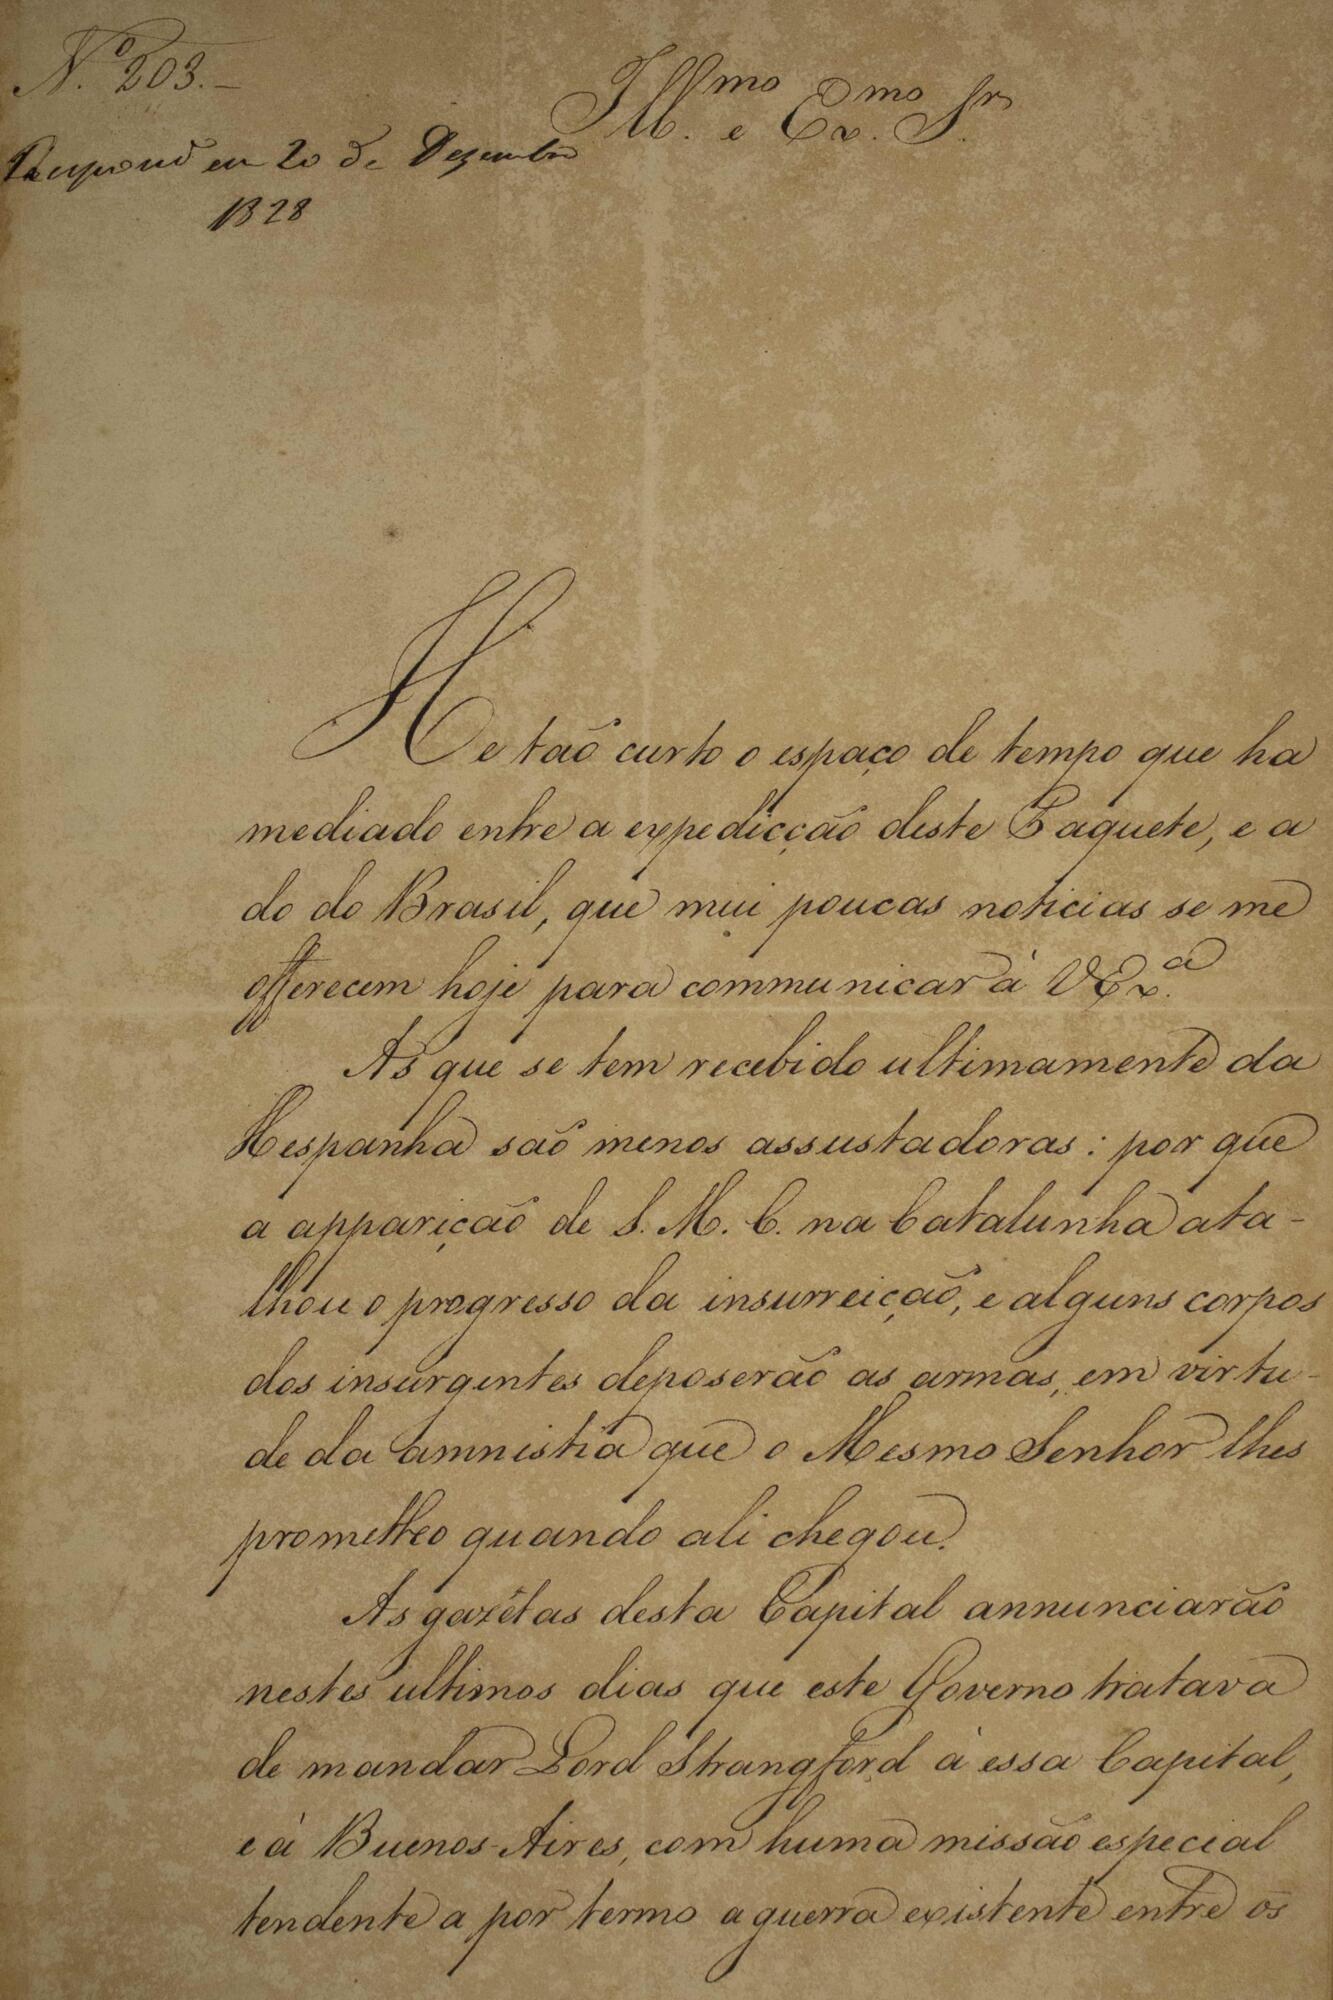 N.º 203.-
Ill.mo e Ex.mo Sr.
Respond em 20 de Dezembro
1828
He taõ curto o espaço de tempo que ha
mediado entre a expedicção deste Paquete, e a
do do Brasil, que mui poucas noticias se me
offerecem hoje para communicar à VEx.a
As que se tem recebido ultimamente da
Hespanha saõ menos assustadoras: por que
a apparição de S. M. C. na Catalunha ata-
lhou o progresso da insurreição, e alguns corpos
dos insurgentes deposerão as armas, em virtu-
de da amnistia que o Mesmo Senhor lhes
prometteo quando ali chegou.
As gazêtas desta Capital annunciarão
nestes ultimos dias que este Governo tratava
de mandar Lord Strangford à essa Capital,
e à Buenos-Aires, com huma missão especial
tendente a por termo a guerra existente entre os